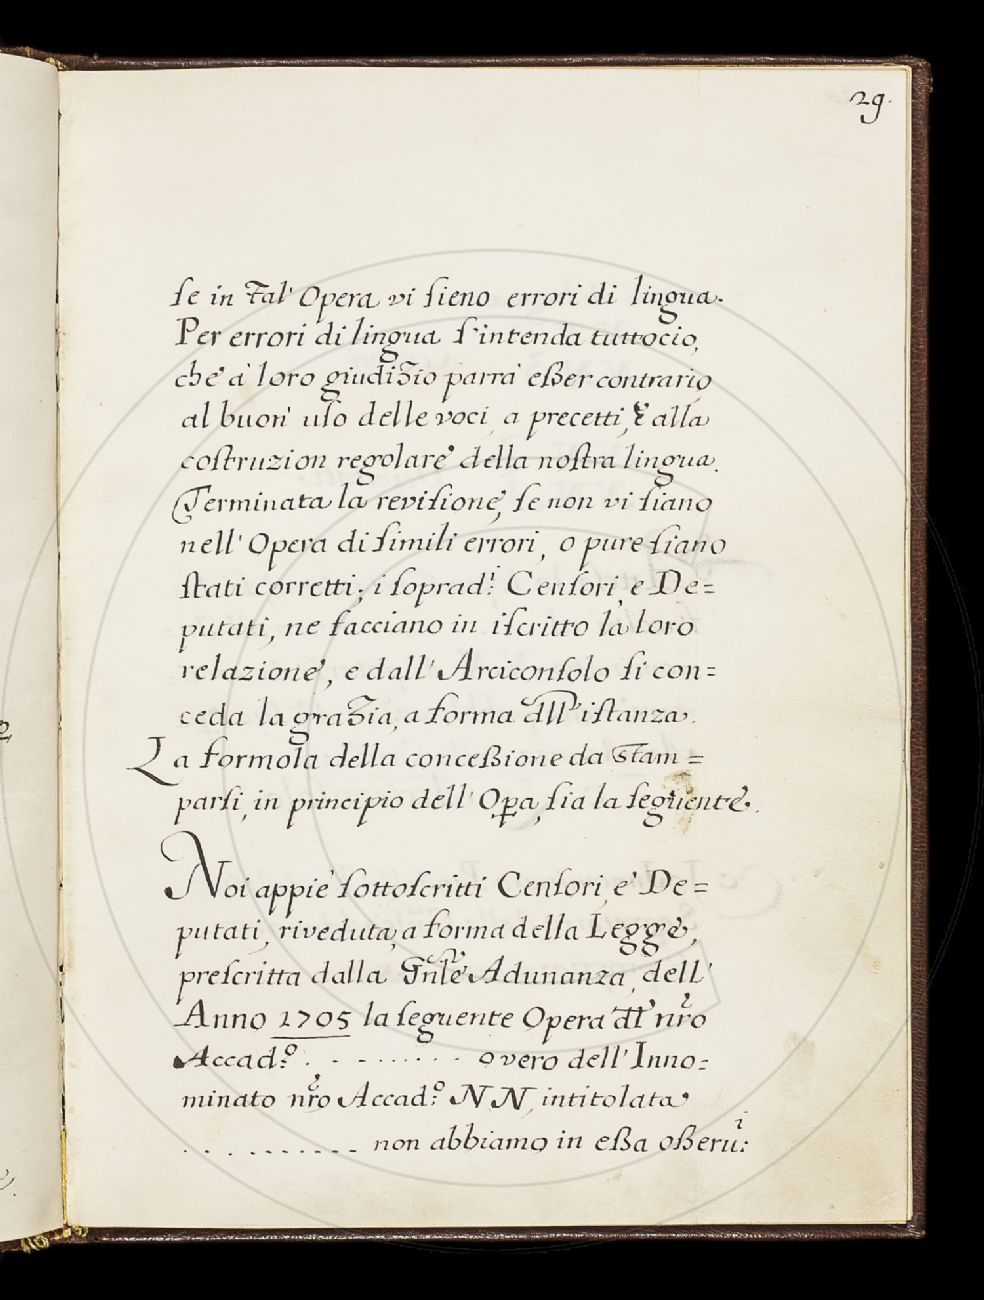 29.
se in tal' Opera vi sieno errori di lingua.
Per errori di lingua s'intenda tuttociò,
che a' loro giudizio parrà eßer contrario
al buon' uso delle voci, a precetti, e alla
costruzion regolare della nostra lingua.
Terminata la revisione, se non vi siano
nell' Opera di simili errori, o pure siano
stati corretti; i soprad.i Censori, e De=
putati, ne facciano in iscritto la loro
relazione, e dall' Arciconsolo si con=
ceda la grazia, a forma dll' istanza.
La formola della conceßione da stam=
parsi, in principio dell' Opa, sia la seguente.
Noi appiè sottoscritti Censori, e De=
putati, riveduta, a forma della Legge,
prescritta dalla Gnle Adunanza, dell'
Anno 1705 la seguente Opera dl nro
Accad.o . - - . . . . . . - overo dell' Inno=
minato nro Accad.o NN, intitolata
. . . . . . . . . . . non abbiamo in eßa oßerv.i: